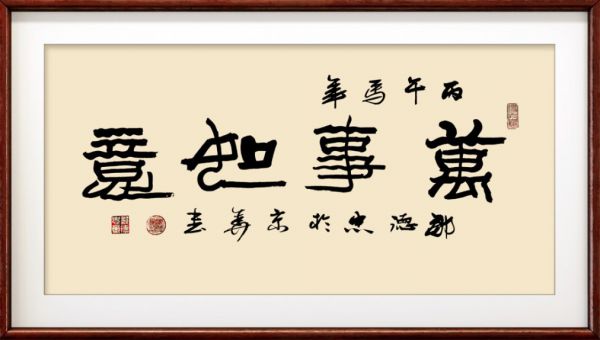 丙午馬年
萬事如意
德忠於京華書